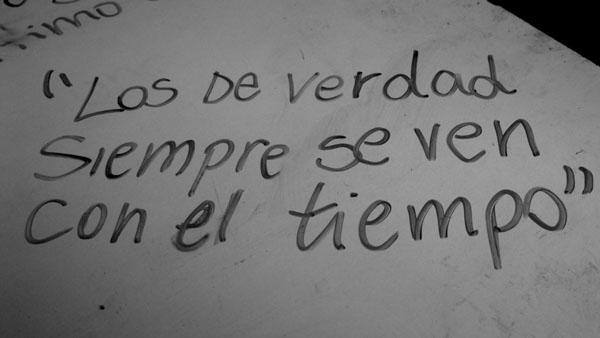 timo
"Los De verdad
Siempre se ven
con el tiempo"